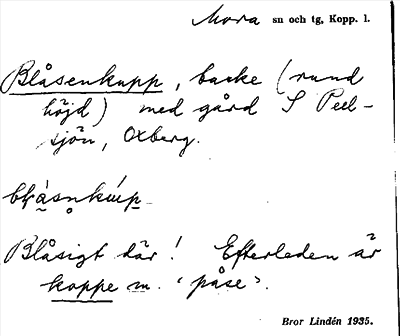 Mora sn och tg, Kopp. l.
Blåsenkupp, backe (rund
höjd) med gård S Peel-
sjön, Oxberg.
Blåsigt där! Efterleden är
koppe m. 'påse'.
Bror Lindén 1935.